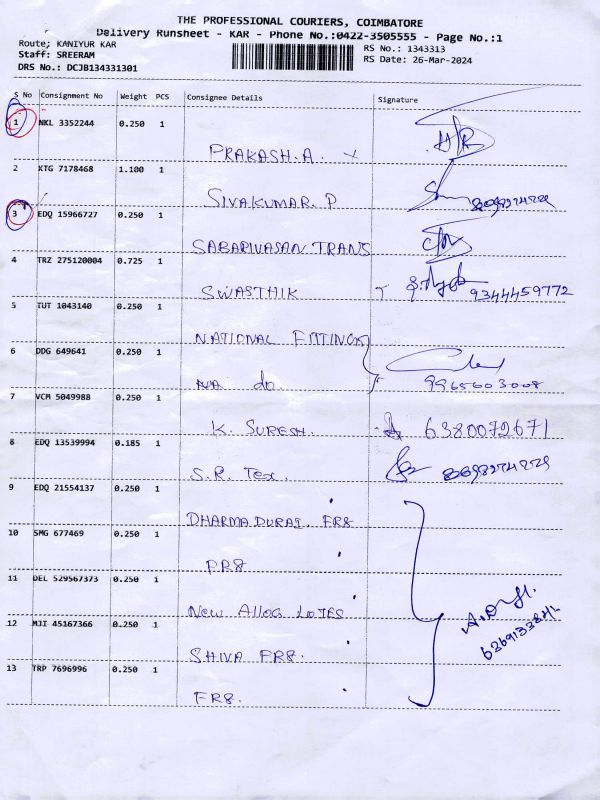 THE PROFESSIONAL COURIERS, COIMBATORE
Delivery Runsheet - KAR - Phone No.:0422-3505555 - Page No.:1
Route; KANIYUR KAR
Staff: SREERAM
DRS No.: DCJB134331301
RS No.: 1343313
RS Date: 26-Mar-2024
S No Consignment No Weight PCS Consignee Details Signature
1 NKL 3352244 0.250 1
PRAKASH.A
2 KTG 7178468 1.100 1
SIVAKUMAR.P
3 EDQ 15966727 0.250 1
SABARIVASAN TRANS
4 TRZ 275120004 0.725 1
SWASTHIK 9344459772
5 TUT 1043140 0.250 1
NATIONAL FITTINGS
6 DDG 649641 0.250 1
do. 9965603008
7 VCM 5049988 0.250 1
K. SURESH. 6380072671
8 EDQ 13539994 0.185 1
S.R. Tex.
9 EDQ 21554137 0.250 1
DHARMADURAI FR8
10 SMG 677469 0.250 1
FR8
11 DEL 529567373 0.250 1
New
12 MJI 45167366 0.250 1
SHIVA FR8.
13 TRP 7696996 0.250 1
FR8.